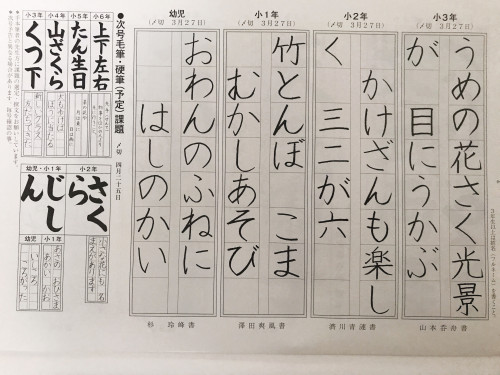 小3年
(〆切 3月27日)
うめの花さく光景
が 目にうかぶ
山本呑舟書
小2年
(〆切 3月27日)
かけざんも楽し
く 三二が六
小1年
(〆切 3月27日)
竹とんぼ こま
むかしあそび
澤田爽風書
幼児
(〆切 3月27日)
おわんのふねに
はしのかい
杉 玲峰書
●次号毛筆・硬筆(予定)課題 〆切 四月二十五日
小6年
上下左右
小5年
たん生日
小4年
山ざくら
小3年
くつ下
小2年
さくら
幼児・小1年
じしん
小2年
小1年
幼児